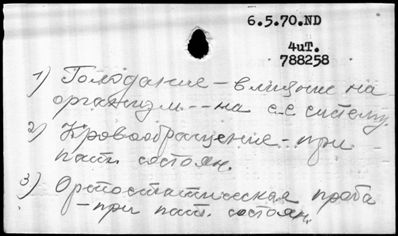 6.5.70.ND
4иТ.
788258
1) Голодание – влияние на
организм -- на с.с систему.
2) Кровообращение – при
пат. состоян.
3) Ортостатическая проба
– при пат. состоян.